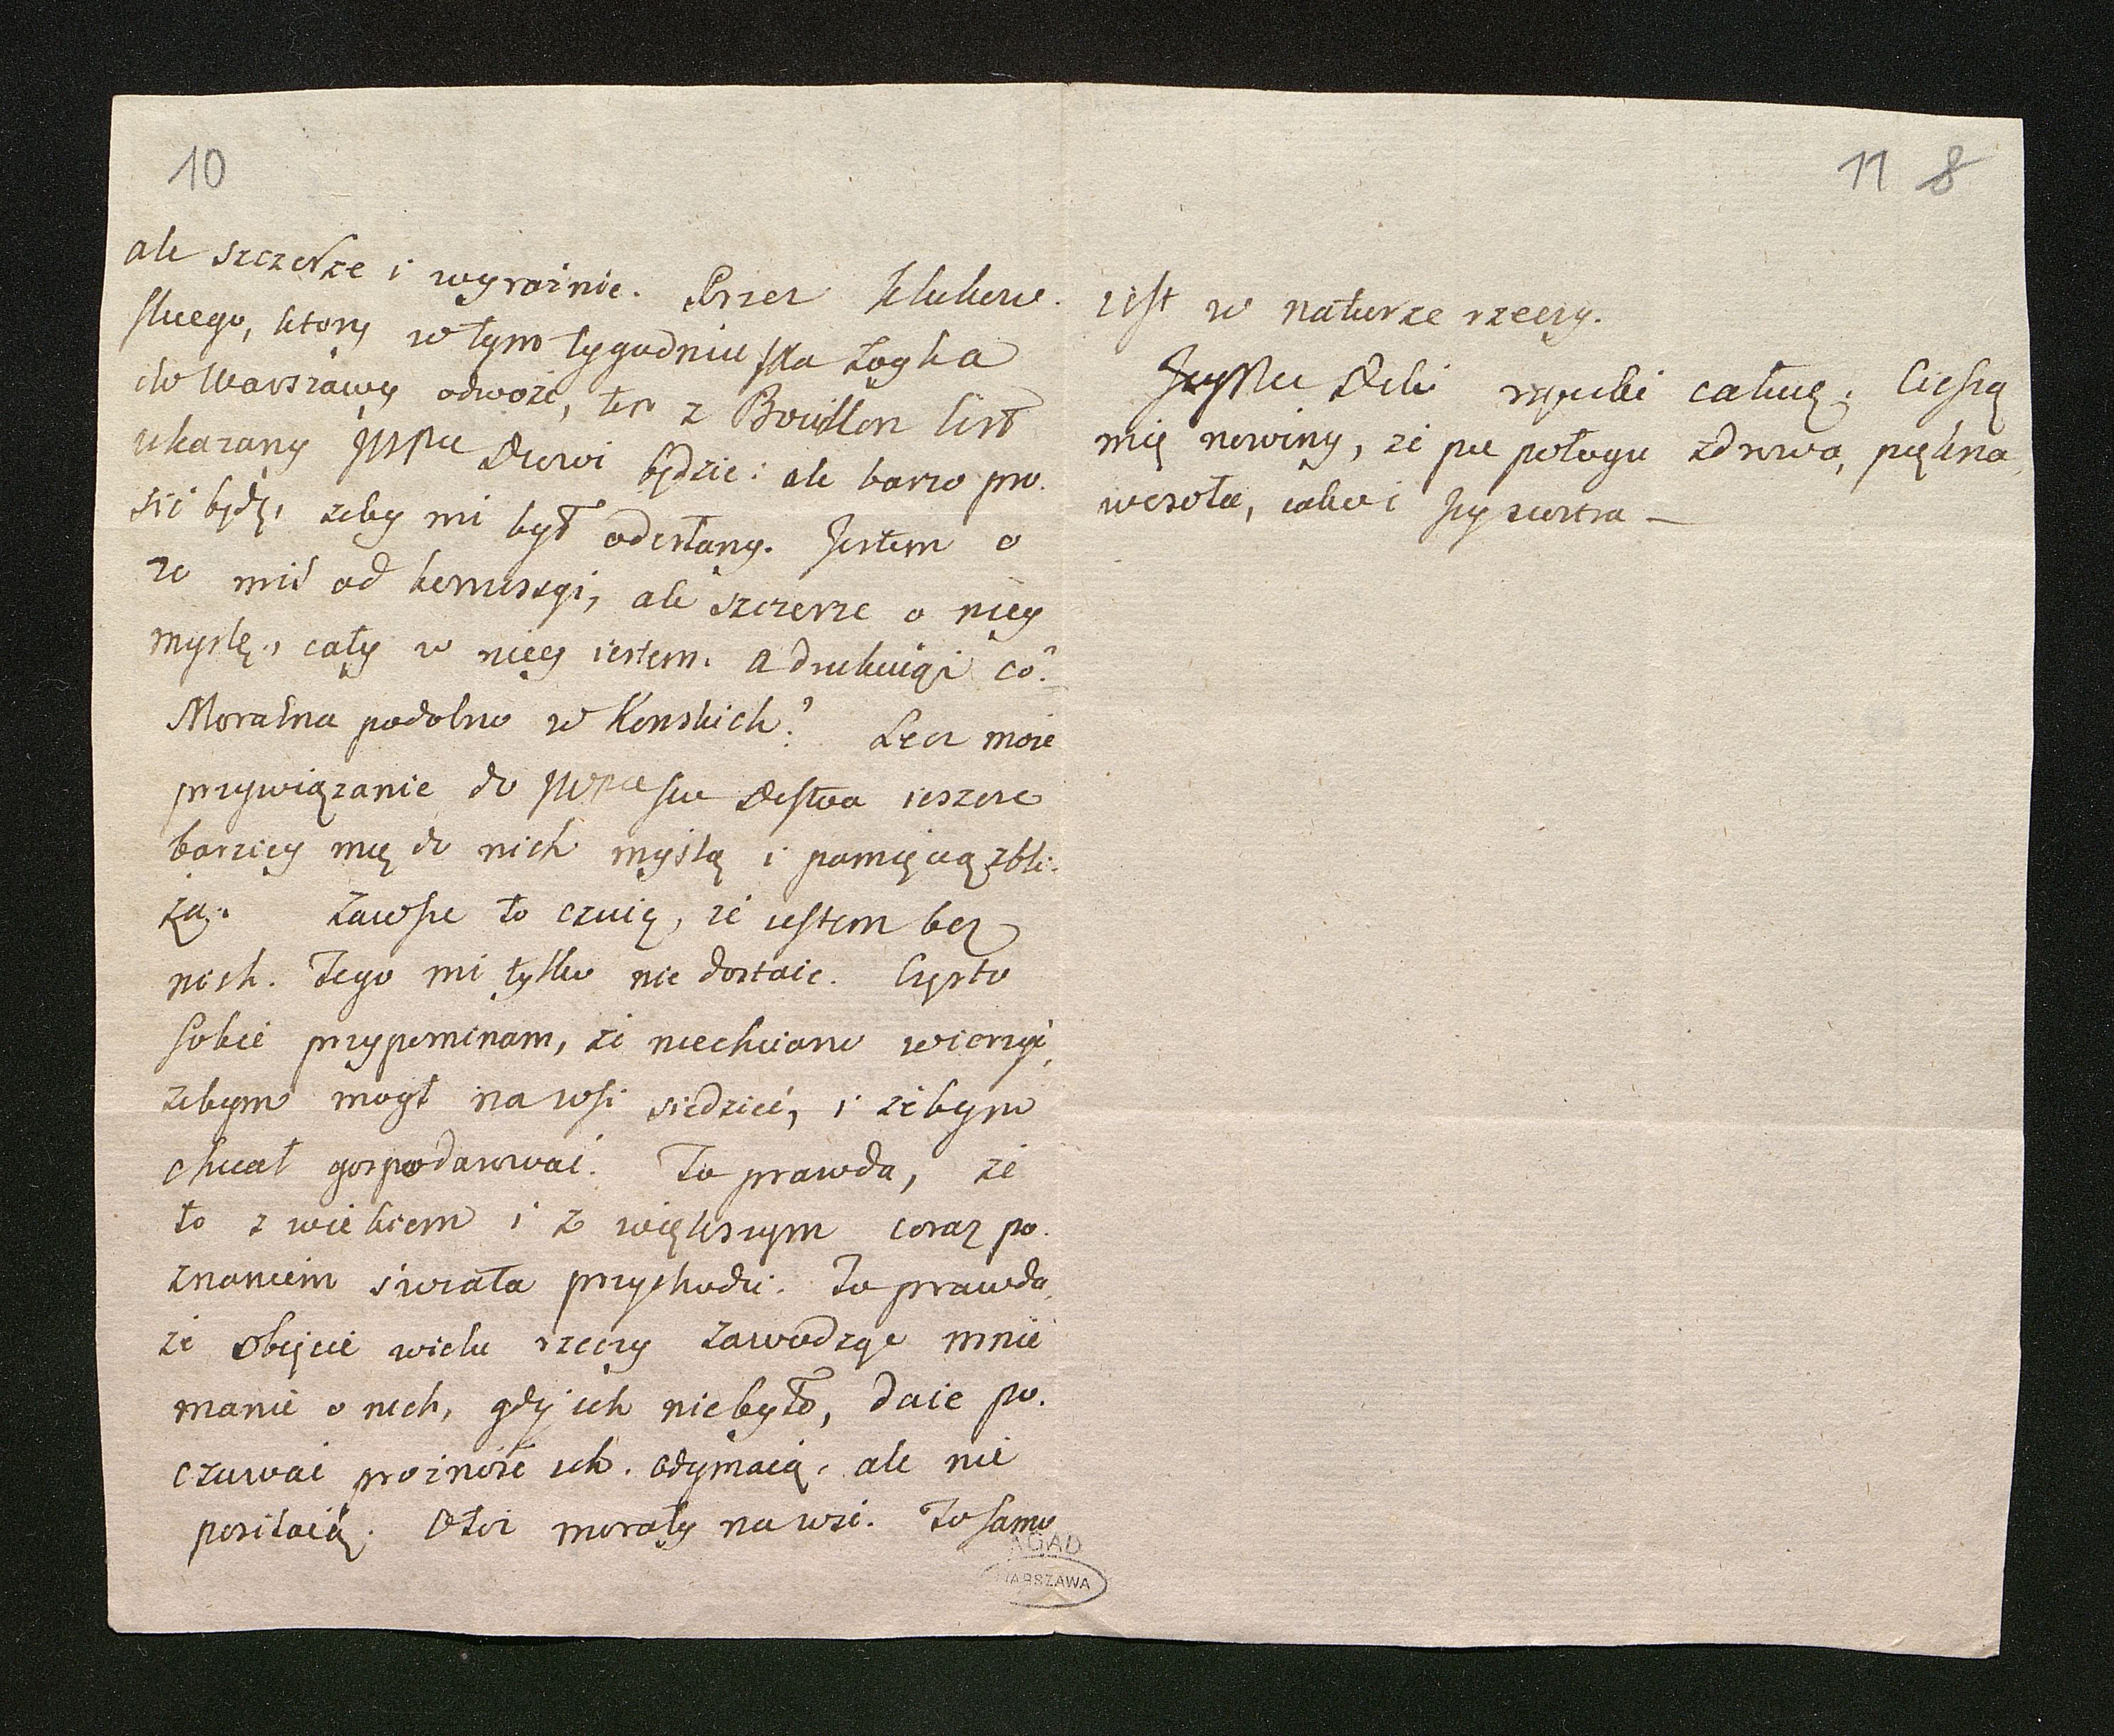 10
ale szczerze i wyraźnie. Przez Klukow.
skiego, ktory w tym tygodniu
do Warszawy odwozi, ten z Bouillon list
ukazany JWPu będzie: ale barzo pro.
sić będę, żeby mi był odesłany. Jestem o
mil od kommissyi, ale szczerze o niey
myślę, cały w niey iestem. A drukuiąż co?
Moralna podobno w Konskich? Lecz moie
przywiązanie do ieszcze
barziey mię do nich myślą i pamięcią zbli.
ża. Zawsze to czuię, że iestem bez
nich. Tego mi tylko nie dostaie. Często
sobie przypominam, że niechciano wierzyć,
żebym mogł na wsi siedzieć, i żebym
chciał gospodarować. To prawda, że
to z wiekiem i z większym coraz po.
znaniem świata przychodzi. To prawda,
że obięcie wielu rzeczy zawodząc mnie
manie o nich, gdy ich niebyło, daie po.
czuwać prożność ich. odymaią, ale nie
posilaią. Otoż morały na wsi. To samo
AGAD
WARSZAWA
11 8
iest w naturze rzeczy.
rączki całuię. Cieszą
mię nowiny, że po połogu zdrowa, piękna,
wesoła, iako i Jey siostra —